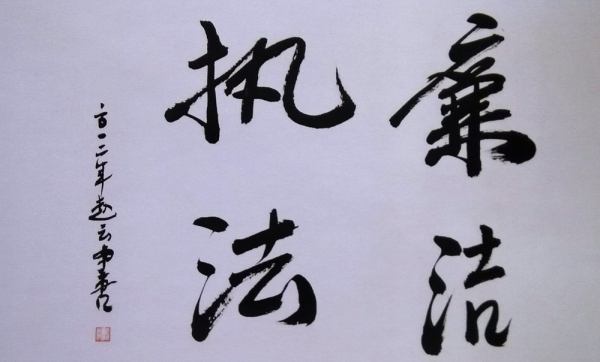 廉洁
执法
二〇一二年赵云书